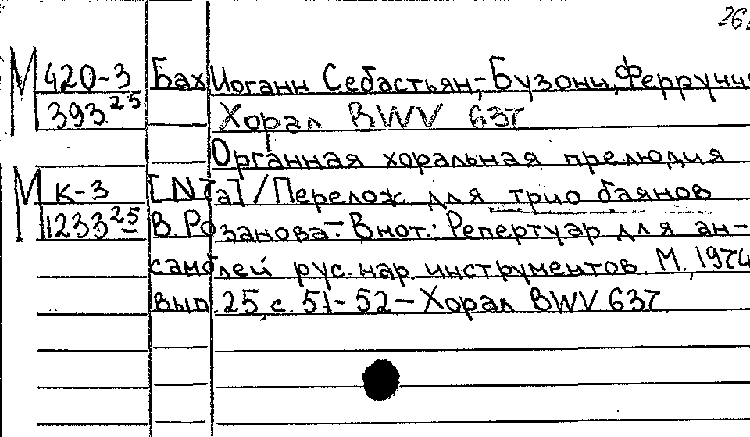 26
М 420-3 Бах, Иоганн Себастьян,-Бузони, Ферруччи
393 25 Хорал BWV 637
Органная хоральная прелюдия
М к-3 [N1а] / Перелож. для трио баянов
1233 25 В. Розанова.- В нот.: Репертуар для ан-
самблей рус. нар. инструментов. М., 1974
вып. 25, с. 51-52 - Хорал BWV 637